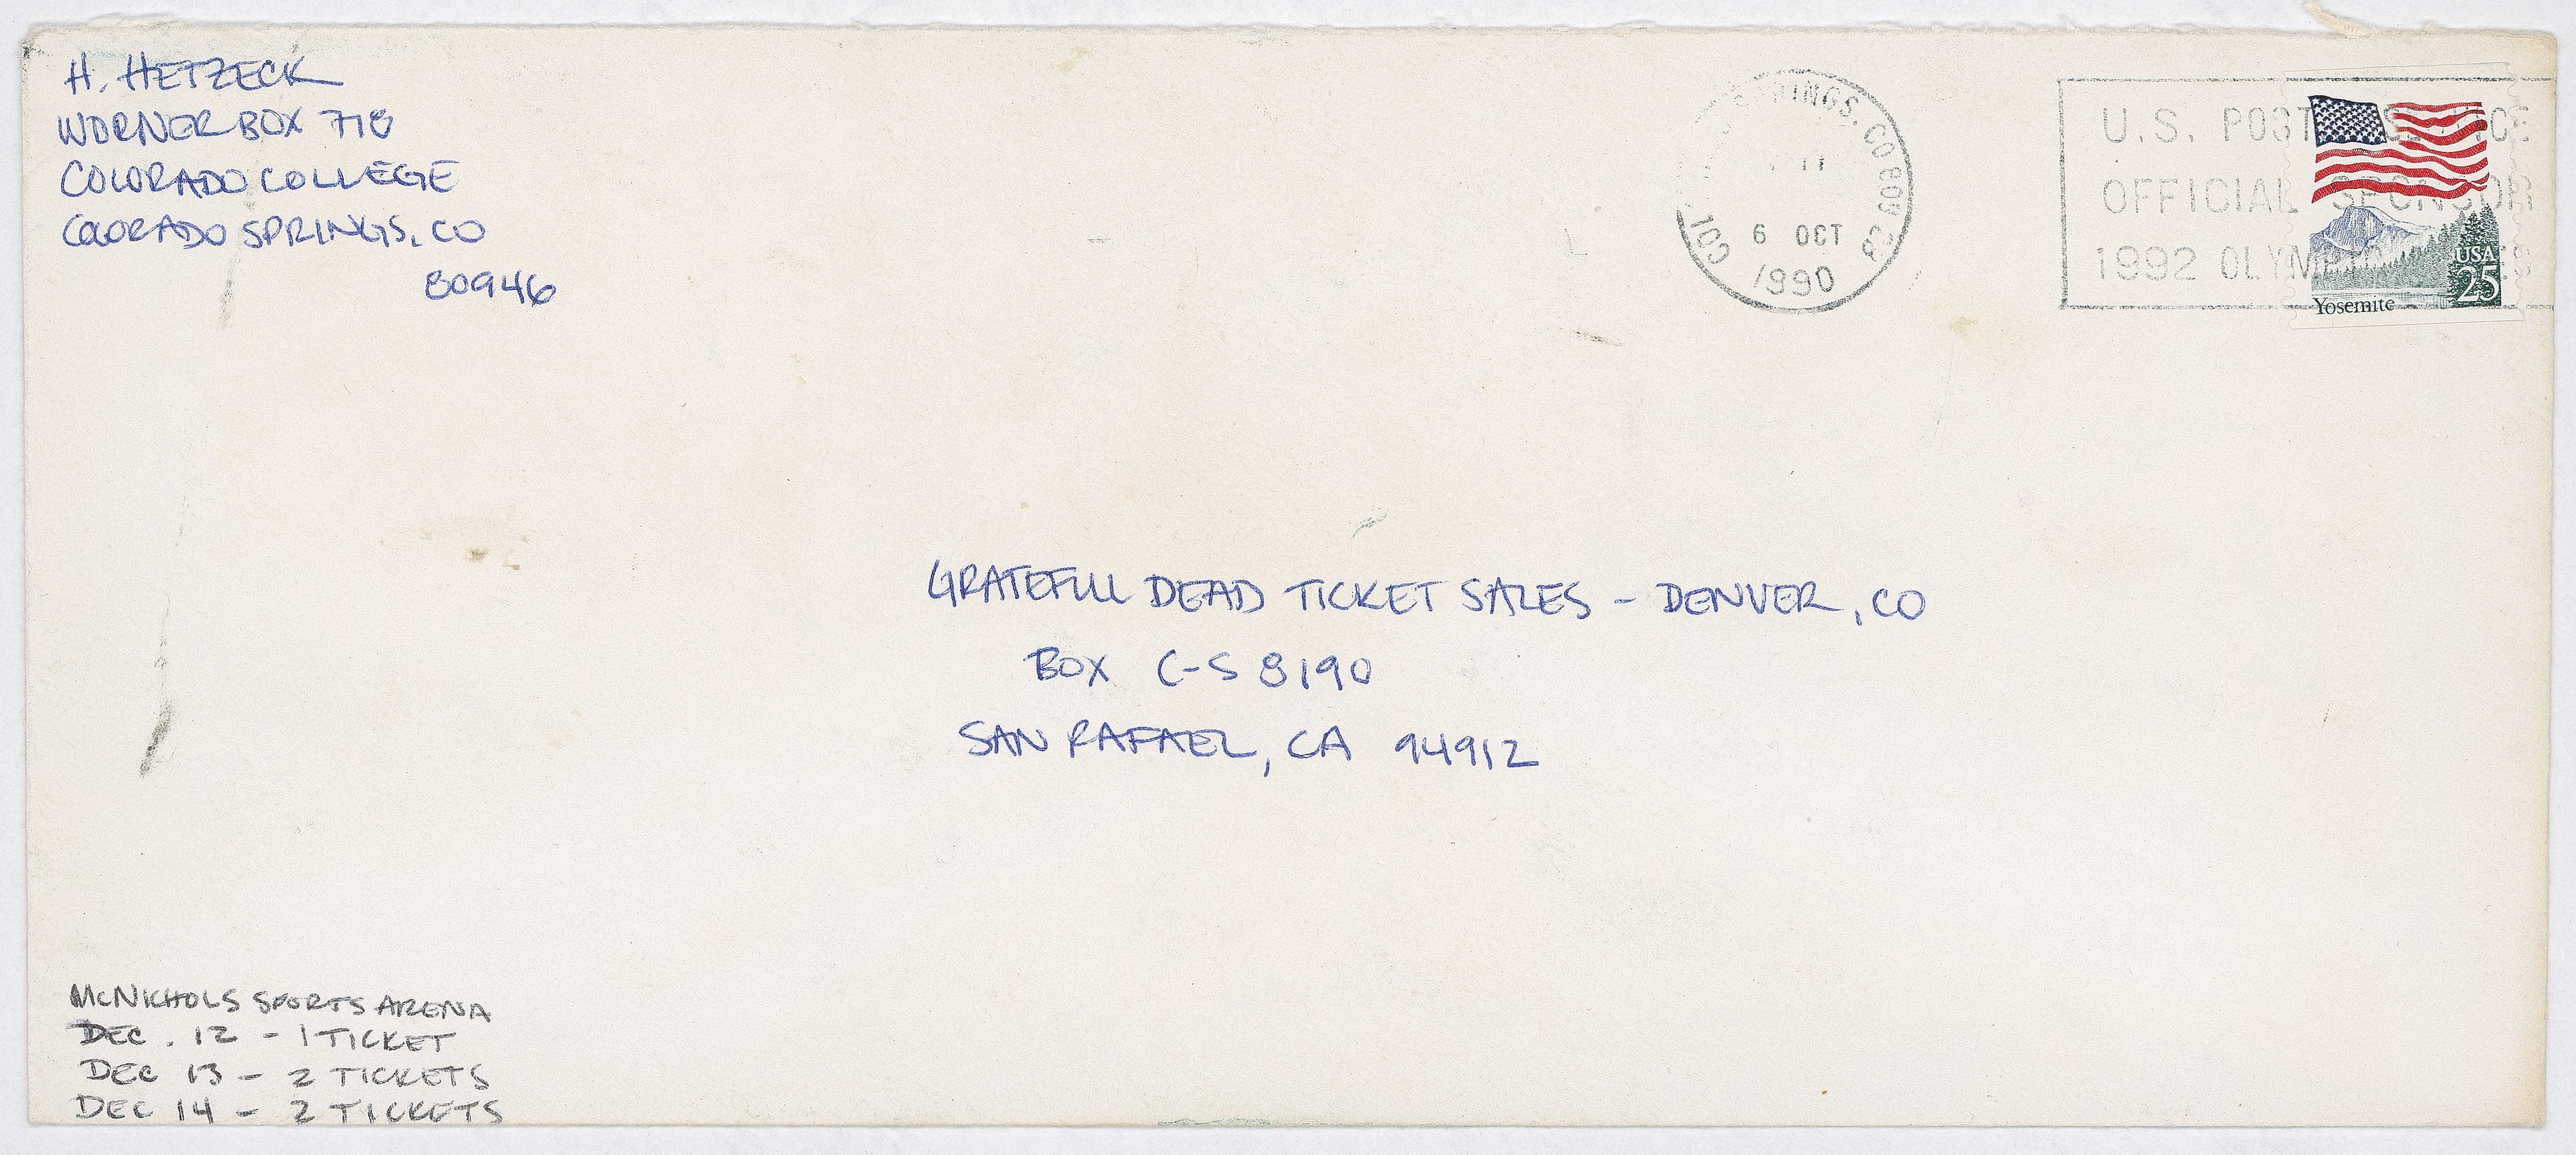 H. HETZECK
WORNER BOX 718
COLORADO COLLEGE
COLORADO SPRINGS, CO
80946
INGS, CO
6 OCT
1990
U.S. POST
OFFICIAL SPONSOR
1992 OLYMP
USA
25
Yosemite
GRATEFULL DEAD TICKET SALES - DENVER, CO
BOX C-S 8190
SAN RAFAEL, CA 94912
MCNICHOLS SPORTS ARENA
DEC. 12 - 1 TICKET
DEC 13 - 2 TICKETS
DEC 14 - 2 TICKETS